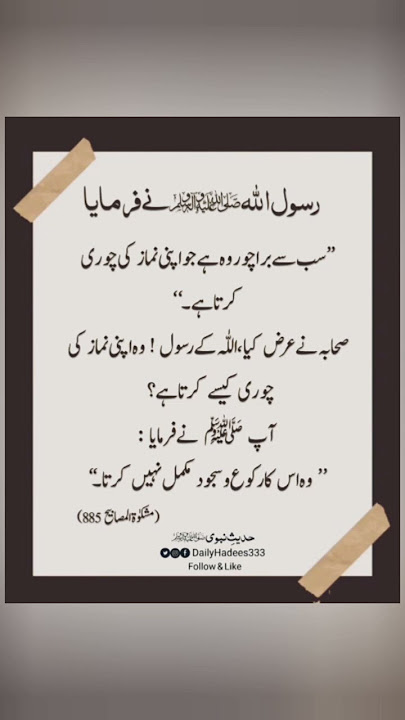 رسول اللہ ﷺ نے فرمایا
”سب سے برا چور وہ ہے جو اپنی نماز کی چوری
کرتا ہے۔“
صحابہ نے عرض کیا، اللہ کے رسول ! وہ اپنی نماز کی
چوری کیسے کرتا ہے؟
آپ ﷺ نے فرمایا :
” وہ اس کا رکوع و سجود مکمل نہیں کرتا۔“
(مشکوٰۃ المصابیح 885)
حدیثِ نبوی ﷺ
DailyHadees333
Follow & Like